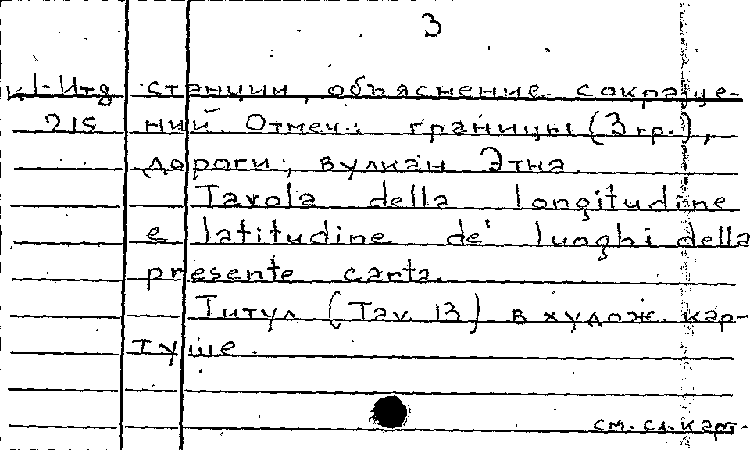 3
к1-Итд станции, объяснение сокраще-
715 ний. Отмеч.: границы (3 гр.),
дороги, вулкан Этна.
Tavola della longitudine
e latitudine de' luoghi della
presente carta.
Титул (Tav. 13) в худож. кар-
туше.
см. сл. карт.